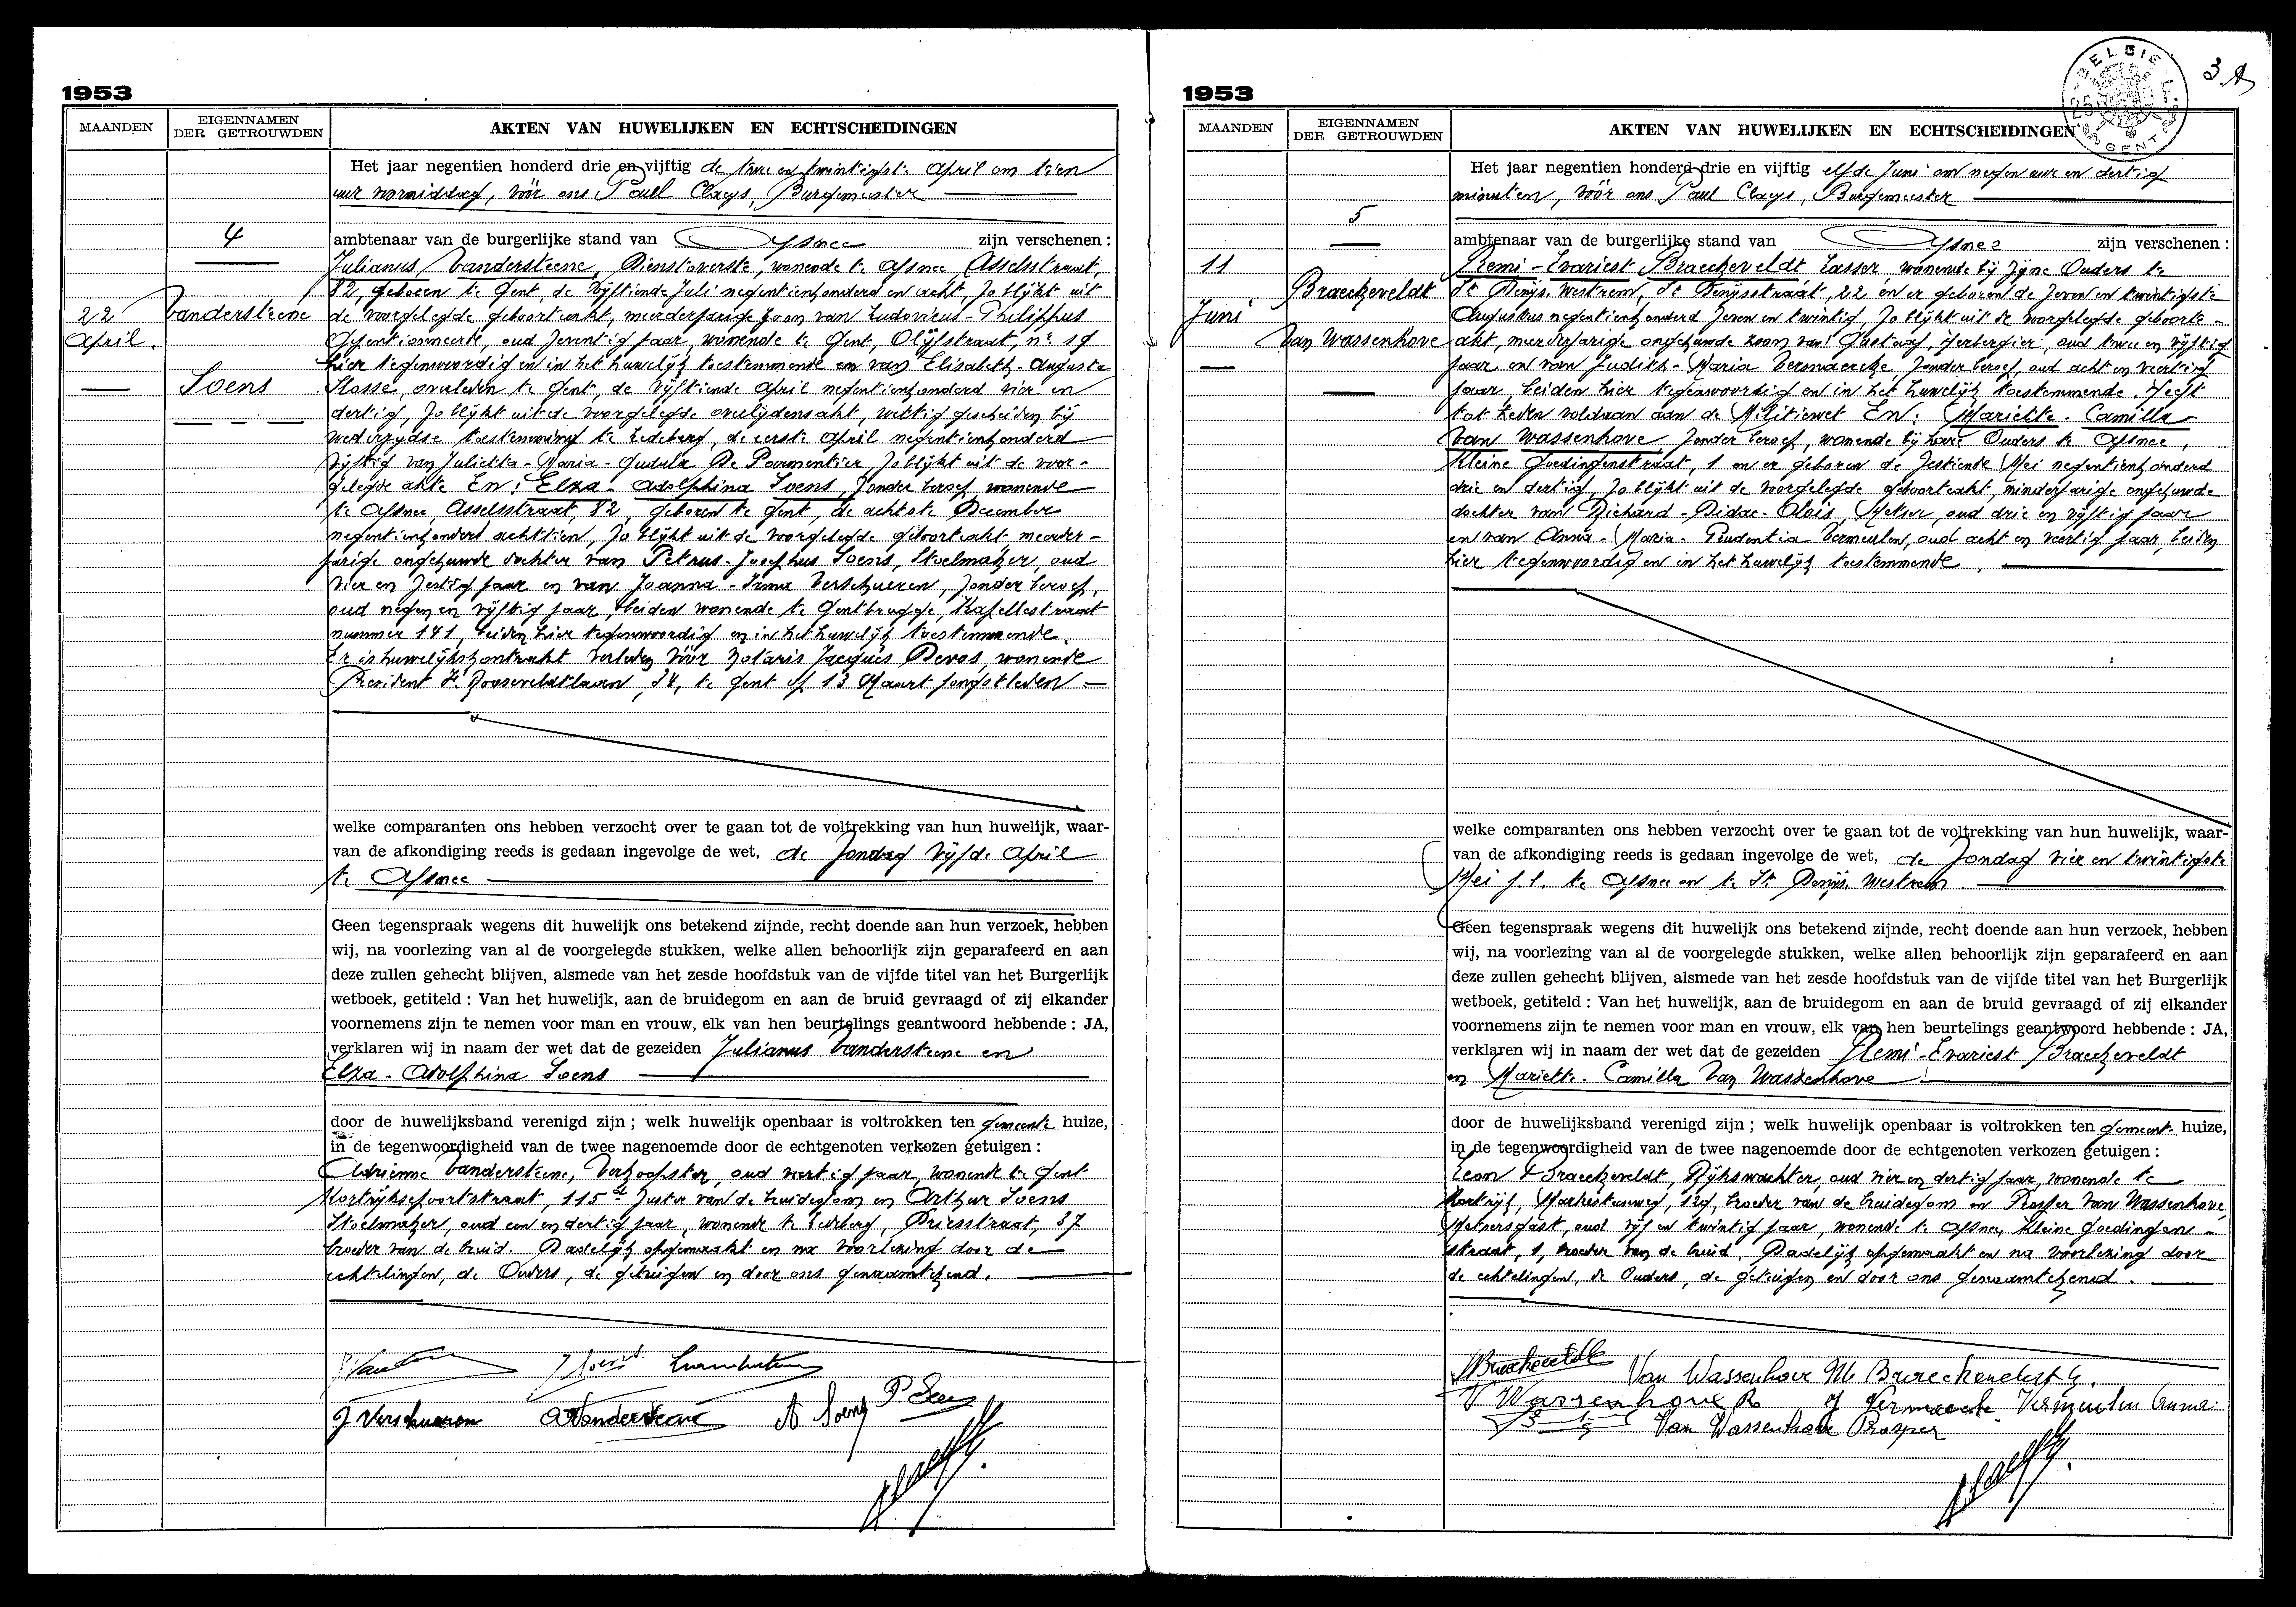 1953
MAANDEN
EIGENNAMEN
DER GETROUWDEN
AKTEN VAN HUWELIJKEN EN ECHTSCHEIDINGEN
4
22
April.
Vandersteene
Soens
Het jaar negentien honderd drie en vijftig de twee en twintigste April om tien
uur voormiddag, vóór ons Paul Claeys, Burgemeester
ambtenaar van de burgerlijke stand van Afsnee zijn verschenen :
Julianus Vandersteene, Dienstoverste, wonende te Afsnee, Asselsstraat,
82, geboren te Gent, de vijftiende Juli negentienhonderd en acht, zo blijkt uit
de voorgelegde geboorteakt, meerderjarige zoon van Ludovicus-Philippus
Gepensionneerde, oud zeventig jaar, wonende te Gent, Olijfstraat, nr 19
hier tegenwoordig en in het huwelijk toestemmende en van Elisabeth-Augusta
Slosse, overleden te Gent, de vijftiende April negentienhonderd vier en
dertig, zo blijkt uit de voorgelegde overlijdensakt, wettig gescheiden bij
wederzijdse toestemming te Ledeberg, de eerste April negentienhonderd
vijftig van Julietta-Maria-Gudula De Parmentier, zo blijkt uit de voor-
gelegde akte En : Elza-Adolphina Soens, zonder beroep, wonende
te Afsnee, Asselsstraat, 82, geboren te Gent, de achtste December
negentienhonderd achttien, zo blijkt uit de voorgelegde geboorteakt meerder-
jarige ongehuwde dochter van Petrus-Josephus Soens, Stoelmaker, oud
vier en zestig jaar en van Joanna-Irma Verschueren, zonder beroep,
oud negen en vijftig jaar, beiden wonende te Gentbrugge, Kapellestraat
nummer 141, beiden hier tegenwoordig en in het huwelijk toestemmende.
Er is huwelijkskontrakt verleden vóór Notaris Jacques Devos, wonende
President F. Rooseveldtlaan, 24, te Gent op 13 Maart jongstleden
welke comparanten ons hebben verzocht over te gaan tot de voltrekking van hun huwelijk, waar-
van de afkondiging reeds is gedaan ingevolge de wet, de zondag vijfde April
te Afsnee
Geen tegenspraak wegens dit huwelijk ons betekend zijnde, recht doende aan hun verzoek, hebben
wij, na voorlezing van al de voorgelegde stukken, welke allen behoorlijk zijn geparafeerd en aan
deze zullen gehecht blijven, alsmede van het zesde hoofdstuk van de vijfde titel van het Burgerlijk
wetboek, getiteld : Van het huwelijk, aan de bruidegom en aan de bruid gevraagd of zij elkander
voornemens zijn te nemen voor man en vrouw, elk van hen beurtelings geantwoord hebbende : JA,
verklaren wij in naam der wet dat de gezeiden Julianus Vandersteene en
Elza-Adolphina Soens
door de huwelijksband verenigd zijn ; welk huwelijk openbaar is voltrokken ten gemeente huize,
in de tegenwoordigheid van de twee nagenoemde door de echtgenoten verkozen getuigen :
Adrienne Vandersteene, Verkoopster, oud veertig jaar, wonende te Gent
Kortrijksepoortstraat, 115 zuster van de bruidegom en Arthur Soens
Stoelmaker, oud een en dertig jaar, wonende te Ledeberg, Driesstraat, 37
broeder van de bruid. Dadelijk opgemaakt en na voorlezing door de
echtelingen, de Ouders, de getuigen en door ons genaamtekend.
J Verschueren
A Vandersteene
A Soens
P. Soens
1953
3
BELGIE
GENT
MAANDEN
EIGENNAMEN
DER GETROUWDEN
AKTEN VAN HUWELIJKEN EN ECHTSCHEIDINGEN
5
11
Juni
Braeckeveldt
Van Wassenhove
Het jaar negentien honderd drie en vijftig elfde Juni om negen uur en dertig
minuten, vóór ons Paul Claeys, Burgemeester
ambtenaar van de burgerlijke stand van Afsnee zijn verschenen :
Remi-Evariest Braeckeveldt Lasser wonende bij zijne Ouders te
St Denijs Westrem, St Denijsstraat, 22 en er geboren de zeven en twintigste
Augustus negentienhonderd zeven en twintig, zo blijkt uit de voorgelegde geboorte-
akt, meerderjarige ongehuwde zoon van Gustaaf, herbergier, oud twee en vijftig
jaar en van Judith-Maria Vermaercke zonder beroep, oud acht en veertig
jaar, beiden hier tegenwoordig en in het huwelijk toestemmende. Heeft
tot heden voldaan aan de Militiewet En : Mariette-Camilla
Van Wassenhove, zonder beroep, wonende bij hare Ouders te Afsnee,
Kleine Goedingenstraat, 1 en er geboren de zestiende Mei negentienhonderd
drie en dertig, zo blijkt uit de voorgelegde geboorteakt, minderjarige ongehuwde
dochter van Richard-Didac-Aloïs, Metser, oud drie en vijftig jaar
en van Anna-Maria-Prudentia Vermeulen, oud acht en veertig jaar, beiden
hier tegenwoordig en in het huwelijk toestemmende.
welke comparanten ons hebben verzocht over te gaan tot de voltrekking van hun huwelijk, waar-
van de afkondiging reeds is gedaan ingevolge de wet, de zondag vier en twintigste
Mei j.l. te Afsnee en te St Denijs Westrem.
Geen tegenspraak wegens dit huwelijk ons betekend zijnde, recht doende aan hun verzoek, hebben
wij, na voorlezing van al de voorgelegde stukken, welke allen behoorlijk zijn geparafeerd en aan
deze zullen gehecht blijven, alsmede van het zesde hoofdstuk van de vijfde titel van het Burgerlijk
wetboek, getiteld : Van het huwelijk, aan de bruidegom en aan de bruid gevraagd of zij elkander
voornemens zijn te nemen voor man en vrouw, elk van hen beurtelings geantwoord hebbende : JA,
verklaren wij in naam der wet dat de gezeiden Remi-Evariest Braeckeveldt
en Mariette-Camilla Van Wassenhove
door de huwelijksband verenigd zijn ; welk huwelijk openbaar is voltrokken ten gemeente huize,
in de tegenwoordigheid van de twee nagenoemde door de echtgenoten verkozen getuigen :
Leon Braeckeveldt, Rijkswachter, oud vier en dertig jaar, wonende te
Kortrijk, 129, broeder van de bruidegom en Prosper Van Wassenhove,
Metsersgast, oud vijf en twintig jaar, wonende te Afsnee, Kleine Goedingen-
straat, 1, broeder van de bruid. Dadelijk opgemaakt en na voorlezing door
de echtelingen, de Ouders, de getuigen en door ons genaamtekend.
Braeckeveldt Van Wassenhove M. Braeckeveldt G.
V Wassenhove R J Vermaercke Vermeulen Anna
Van Wassenhove Prosper